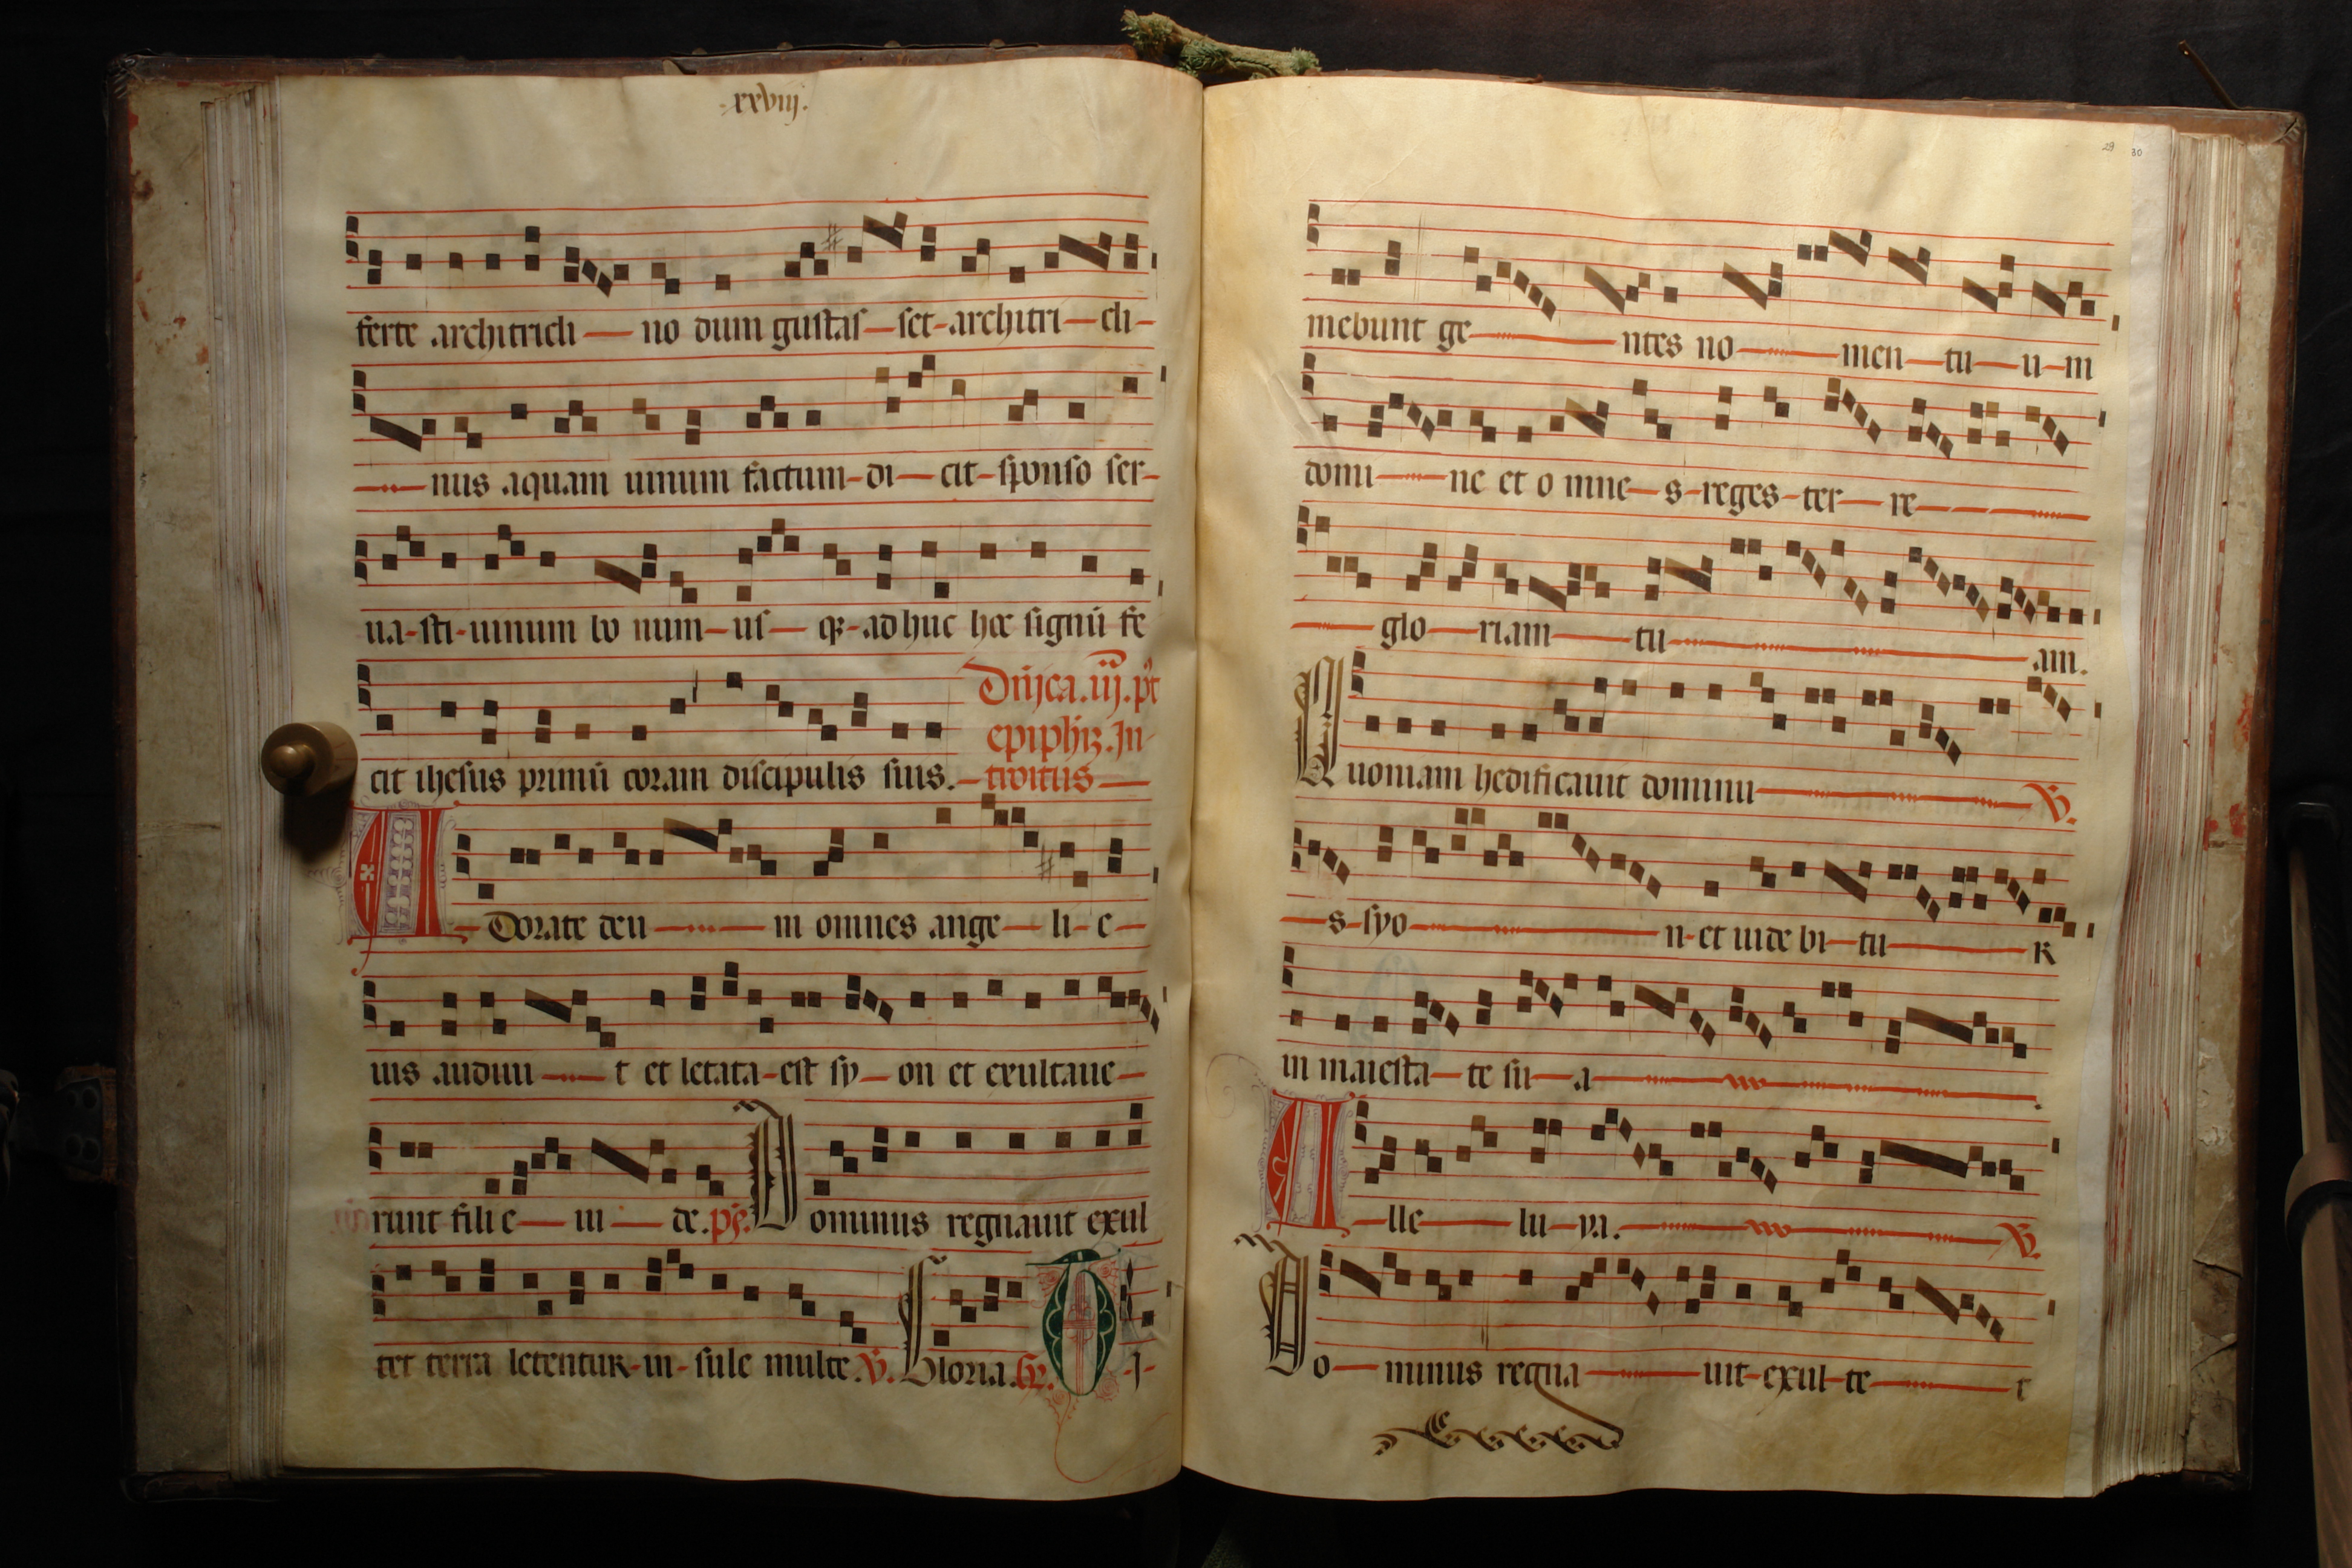 xxviij.
ferte architricli no dum gustas set architri cli
nus aquam uinum factum di cit sponso ser
ua sti uinum bo num us qꝫ ad huc hoc signū fe
cit ihesus primū coram discipulis suis.
Dn̄ica .iij. pꝰt
epiphīe. In
troitus
Adorate deu m omnes ange li e
ius audiui t et letata est sy on et exultaue
runt filie iu de. ps. Dominus regnauit exul
tet terra letentur in sule multe. V. Gloria. Gr. Ti
29 30
mebunt ge ntes no men tu u m
domi ne et o mne s reges ter re
glo riam tu am.
Quoniam hedificauit dominu V.
s syo n et uide bi tu r
in maiesta te su a
Alle lu ya. V.
Do minus regna uit exul te t